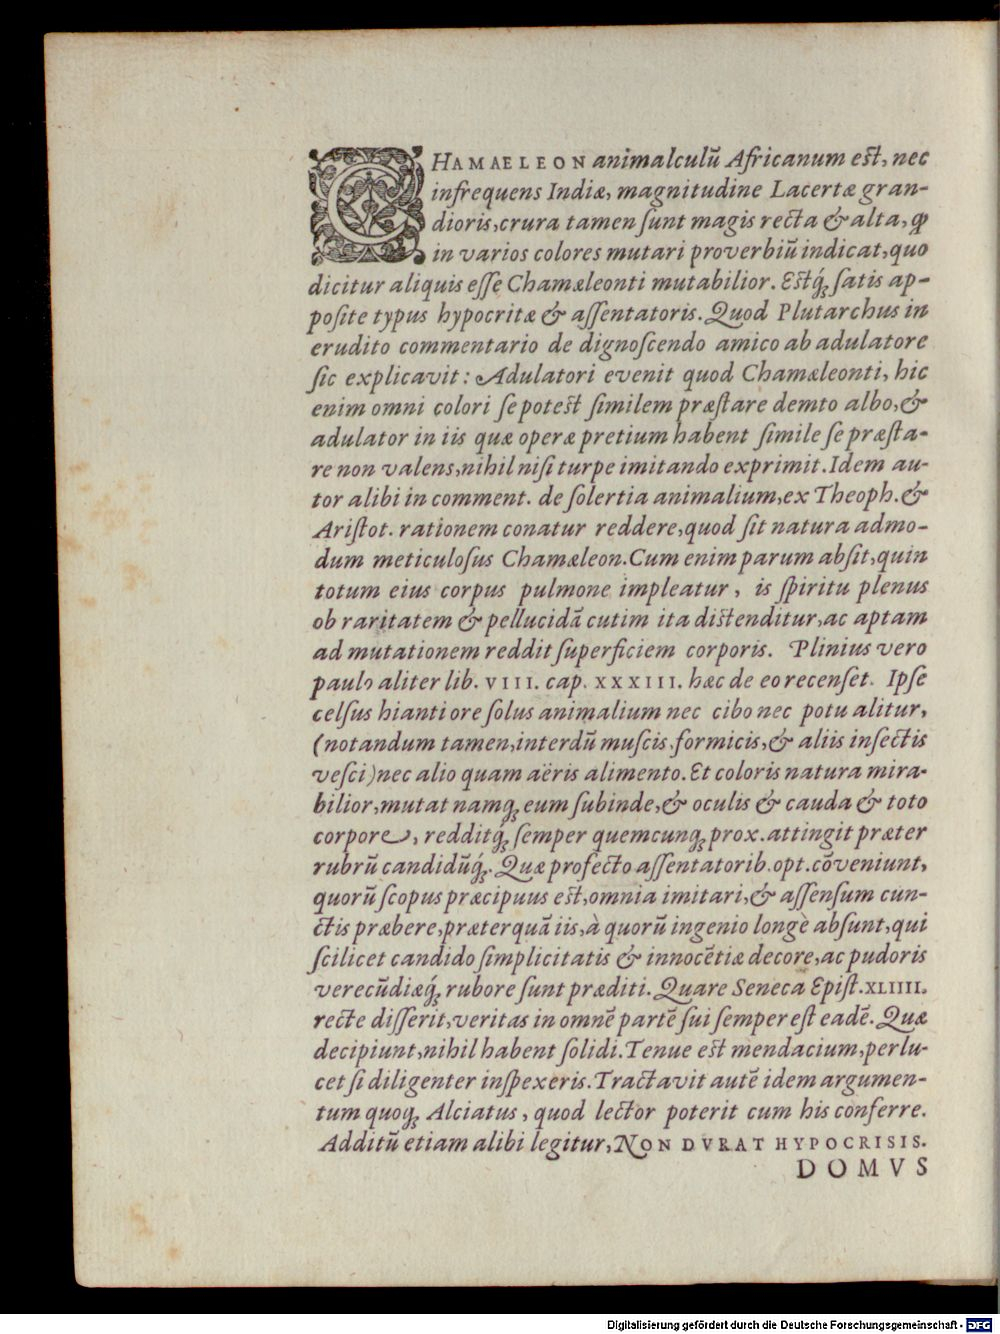 CHAMAELEON animalculũ Africanum est, nec
infrequens Indiæ, magnitudine Lacertæ gran-
dioris, crura tamen ſunt magis recta & alta, ꝙ
in varios colores mutari proverbiũ indicat, quo
dicitur aliquis eſſe Chamæleonti mutabilior. Estq́ꝫ ſatis ap-
poſite typus hypocritæ & aſſentatoris. Quod Plutarchus in
erudito commentario de dignoſcendo amico ab adulatore
ſic explicavit: Adulatori evenit quod Chamæleonti, hic
enim omni colori ſe potest ſimilem præſtare demto albo, &
adulator in iis quæ operæ pretium habent ſimile ſe præſta-
re non valens, nihil niſi turpe imitando exprimit. Idem au-
tor alibi in comment. de ſolertia animalium, ex Theoph. &
Ariſtot. rationem conatur reddere, quod ſit natura admo-
dum meticuloſus Chamæleon. Cum enim parum abſit, quin
totum eius corpus pulmone impleatur, is ſpiritu plenus
ob raritatem & pellucidã cutim ita distenditur, ac aptam
ad mutationem reddit ſuperficiem corporis. Plinius vero
paulo aliter lib. VIII. cap. XXXIII. hæc de eo recenſet. Ipſe
celſus hianti ore ſolus animalium nec cibo nec potu alitur,
(notandum tamen, interdũ muſcis, formicis, & aliis inſectis
veſci) nec alio quam aëris alimento. Et coloris natura mira-
bilior, mutat namqꝫ eum ſubinde, & oculis & cauda & toto
corpore, redditq́ꝫ ſemper quemcunqꝫ prox. attingit præter
rubrũ candidũq́ꝫ. Quæ profecto aſſentatorib. opt. cõveniunt,
quorũ ſcopus præcipuus est, omnia imitari, & aſſenſum cun-
ctis præbere, præterquã iis, à quorũ ingenio longè abſunt, qui
ſcilicet candido ſimplicitatis & innocẽtiæ decore, ac pudoris
verecũdiæq́ꝫ rubore ſunt præditi. Quare Seneca Epiſt. XLIIII.
recte diſſerit, veritas in omnẽ partẽ ſui ſemper eſt eadẽ. Quæ
decipiunt, nihil habent ſolidi. Tenue est mendacium, perlu-
cet ſi diligenter inſpexeris. Tractavit autẽ idem argumen-
tum quoqꝫ Alciatus, quod lector poterit cum his conferre.
Additũ etiam alibi legitur, NON DVRAT HYPOCRISIS.
DOMVS
Digitalisierung gefördert durch die Deutsche Forschungsgemeinschaft - DFG